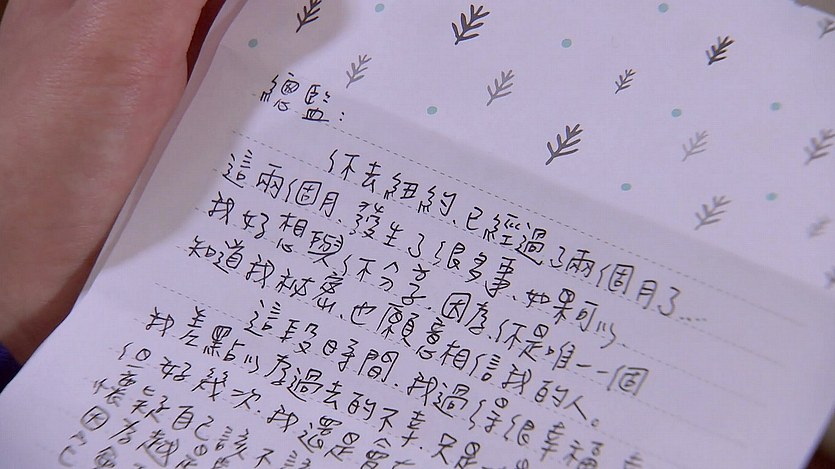 總監:
你去紐約、已經過了兩個月了...
這兩個月、發生了很多事、如果可以、
我好想與你分享、因為你是唯一一個
知道我秘密、也願意相信我的人。
這段時間、我過得很幸福
我差點以為過去的不幸、只是
但好幾次、我還是會
懷疑自己該不該
因為越